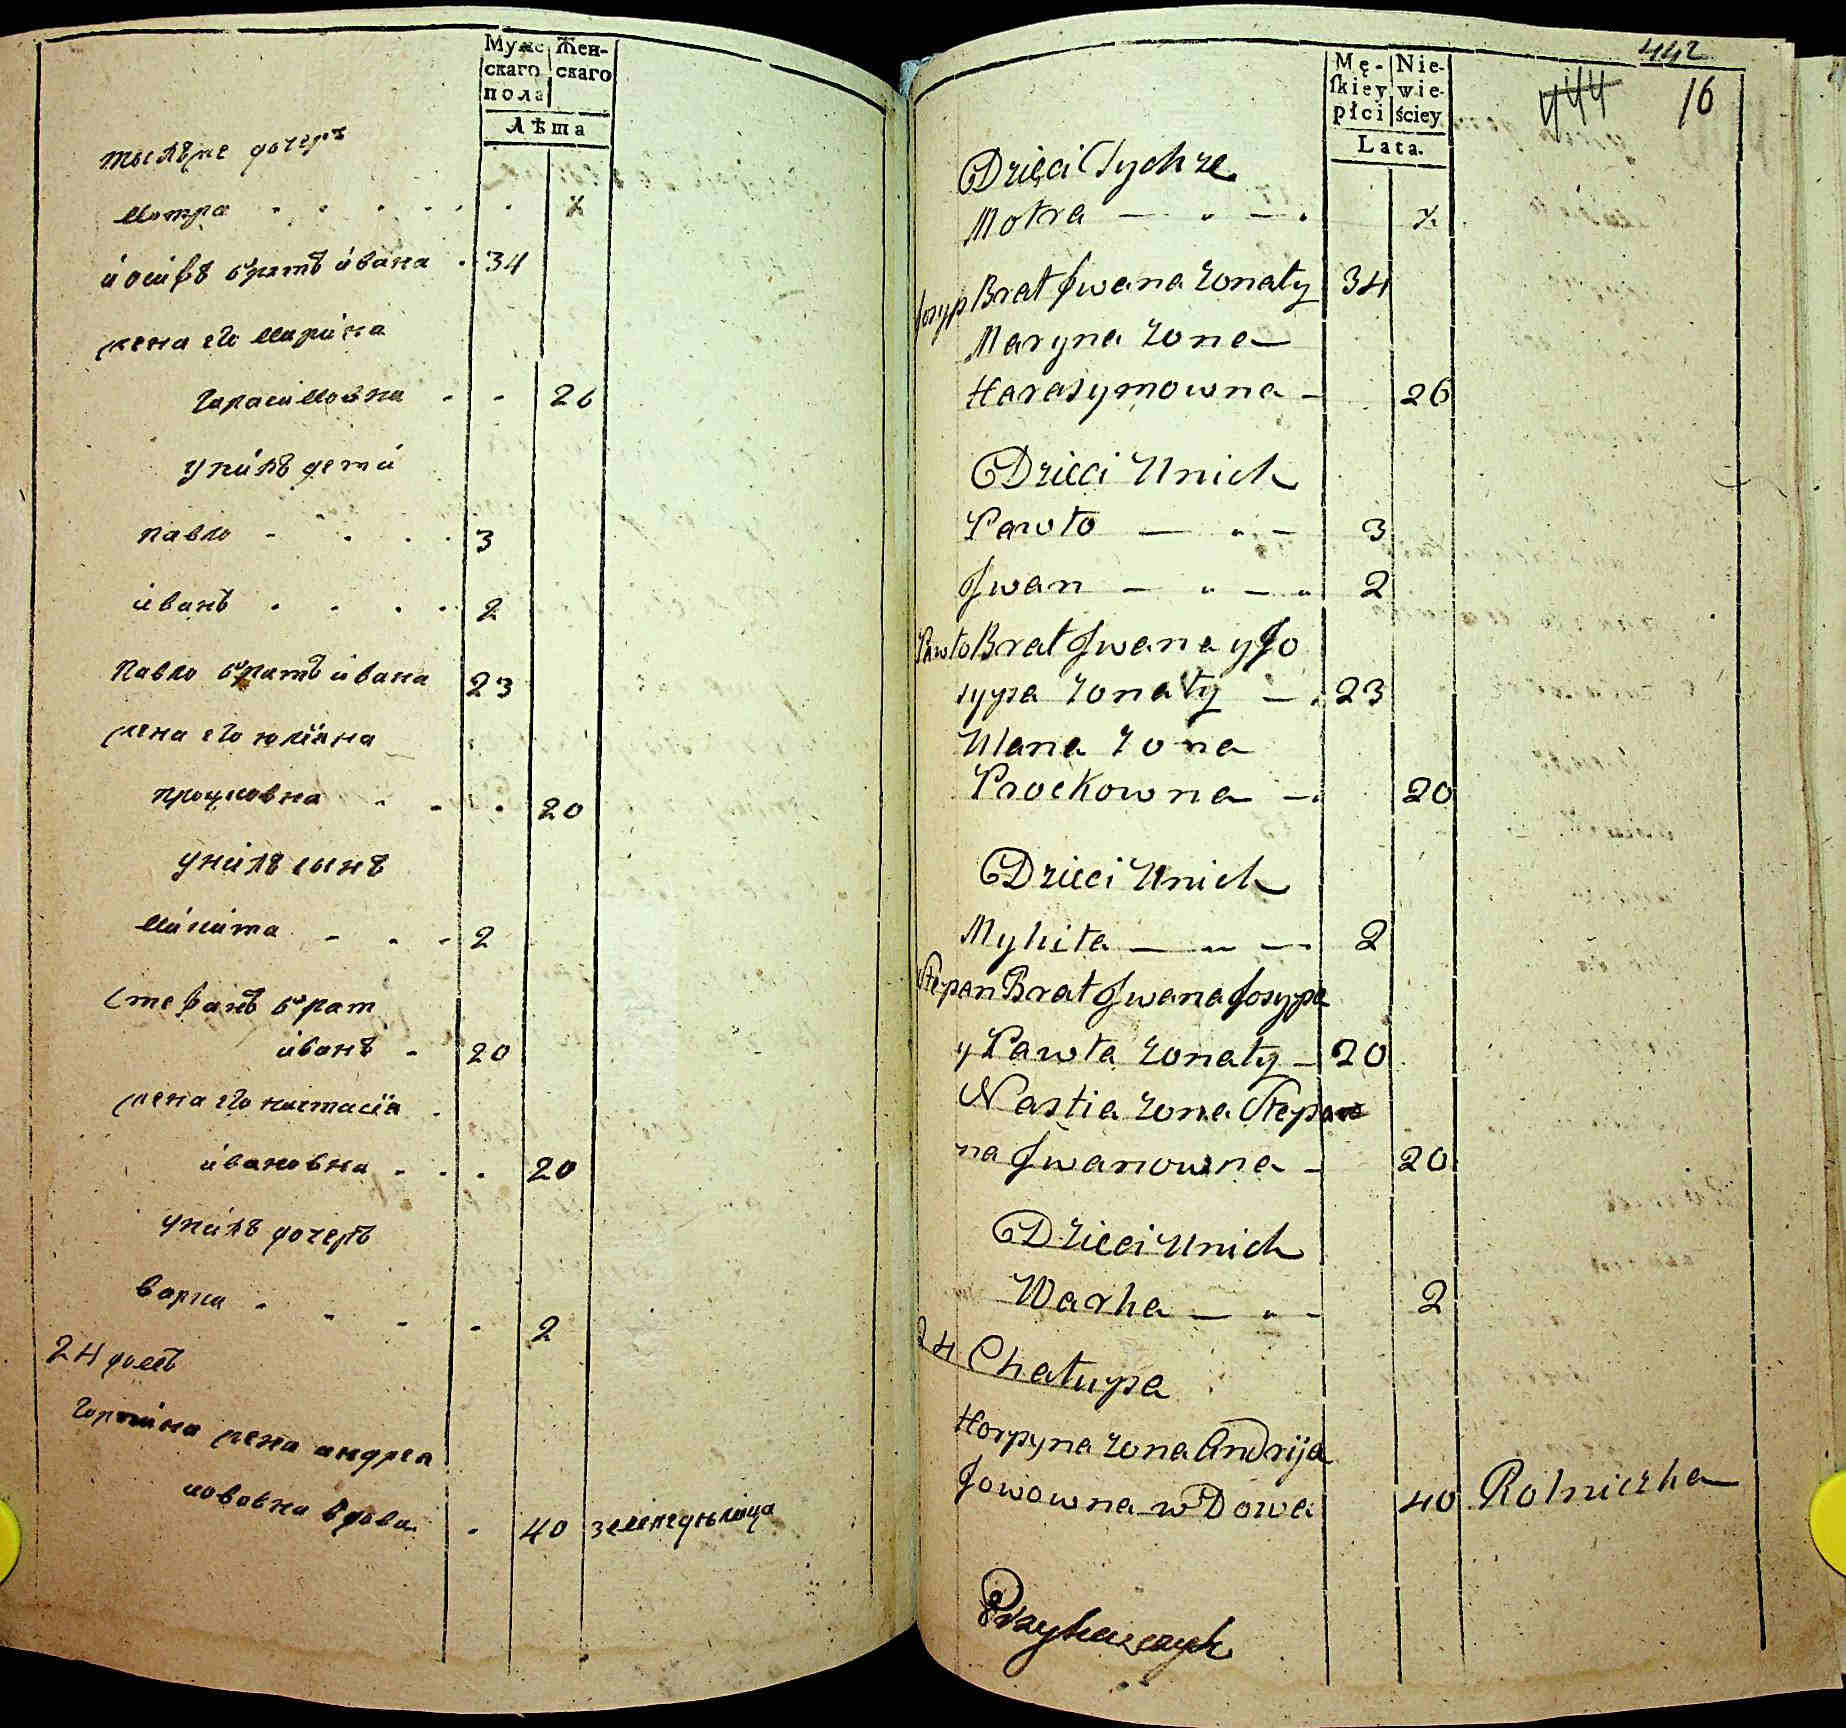 Мужс
скаго
пола
Жен-
скаго
Лѣта
тыхъже дочеръ
Мотра . . . . . . ½
іосифъ братъ ивана . 34
жена его Марина
Гарасимовна - - 26
унихъ дети
павло - . . . 3
иванъ . . . . 2
Павло братъ ивана 23
жена его юліяна
процковна . - . 20
унихъ сынъ
Микита - . - 2
Стефанъ брат
иванъ - 20
жена его настасія .
ивановна . . . 20
унихъ дочеръ
варка . - - - 2
24 домъ
Горпина жена андрея
іововна вдова . 40 земледелица
442
444 16
Mę-
skiey
płci
Nie-
wie-
ściey
Lata.
Dzieci Tychże
Motra — „ — . ½
Josyp Brat Jwana zonaty 34
Maryna zona
Harasymowna — 26
Dzieci Unich
Pawło — „ — 3
Jwan — „ — „ 2
Pawło Brat Jwana y Jo
sypa zonaty — . 23
Ulana zona
Prockowna — . 20
Dzieci Unich
Mykita — „ — . 2
Stepan Brat Jwana Josypa
y Pawła zonaty — 20
Nastia zona Stepa
na Jwanowna — 20
Dzieci Unich
Warka — „ — 2
24 Chałupa
Horpyna zona Andrija
Jowowna wDowa 40 Rolniczka